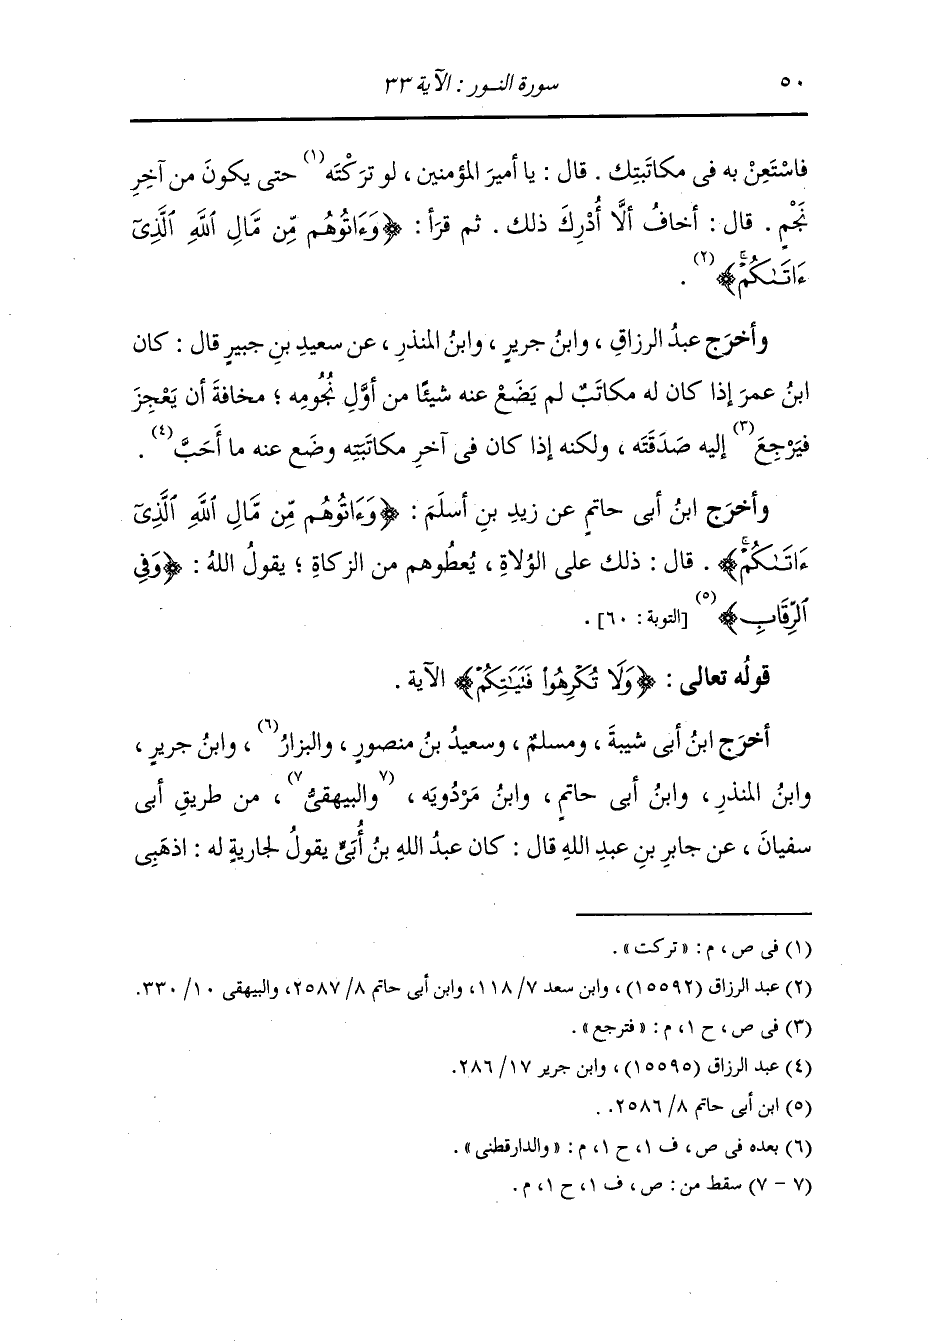 ٥٠
سورة النــور : الآية ٣٣
فاسْتَعِنْ به فى مكاتَبتِك . قال : يا أميرَ المؤمنين ، لو ترَكْتَه(١) حتى يكونَ من آخِرِ
نَجْمٍ . قال : أخافُ ألَّا أُدْرِكَ ذلك . ثم قرَأ : ﴿وَءَاتُوهُم مِّن مَّالِ ٱللَّهِ ٱلَّذِىٓ
ءَاتَىٰكُمْۚ﴾(٢) .
وأخرَج عبدُ الرزاقِ ، وابنُ جريرٍ ، وابنُ المنذرِ ، عن سعيدِ بنِ جبيرٍ قال : كان
ابنُ عمرَ إذا كان له مكاتَبٌ لم يَضَعْ عنه شيئًا من أوَّلِ نُجُومِه ؛ مخافةَ أن يَعْجِزَ
فيَرْجِعَ(٣) إليه صَدَقَتَه ، ولكنه إذا كان فى آخرِ مكاتَبَتِه وضَع عنه ما أحَبَّ(٤) .
وأخرَج ابنُ أبى حاتمٍ عن زيدِ بنِ أسلَمَ : ﴿وَءَاتُوهُم مِّن مَّالِ ٱللَّهِ ٱلَّذِىٓ
ءَاتَىٰكُمْۚ﴾ . قال : ذلك على الوُلاةِ ، يُعطُوهم من الزكاةِ ؛ يقولُ اللهُ : ﴿وَفِى
ٱلرِّقَابِ﴾(٥) [التوبة : ٦٠] .
قولُه تعالى : ﴿وَلَا تُكْرِهُوا۟ فَتَيَٰتِكُمْ﴾ الآية .
أخرَج ابنُ أبى شيبةَ ، ومسلمٌ ، وسعيدُ بنُ منصورٍ ، والبزارُ(٦) ، وابنُ جريرٍ ،
وابنُ المنذرِ ، وابنُ أبى حاتمٍ ، وابنُ مَرْدُويَه ، (٧والبيهقىُّ٧) ، من طريقِ أبى
سفيانَ ، عن جابرِ بنِ عبدِ اللهِ قال : كان عبدُ اللهِ بنُ أُبَىٍّ يقولُ لجاريةٍ له : اذهَبِى
(١) فى ص ، م : « تركت » .
(٢) عبد الرزاق (١٥٥٩٢) ، وابن سعد ٧/ ١١٨، وابن أبى حاتم ٨/ ٢٥٨٧، والبيهقى ١٠/ ٣٣٠.
(٣) فى ص ، ح ١، م : « فترجع » .
(٤) عبد الرزاق (١٥٥٩٥) ، وابن جرير ١٧/ ٢٨٦.
(٥) ابن أبى حاتم ٨/ ٢٥٨٦. .
(٦) بعده فى ص ، ف ١، ح ١، م : « والدارقطنى » .
(٧ - ٧) سقط من : ص ، ف ١، ح ١، م .